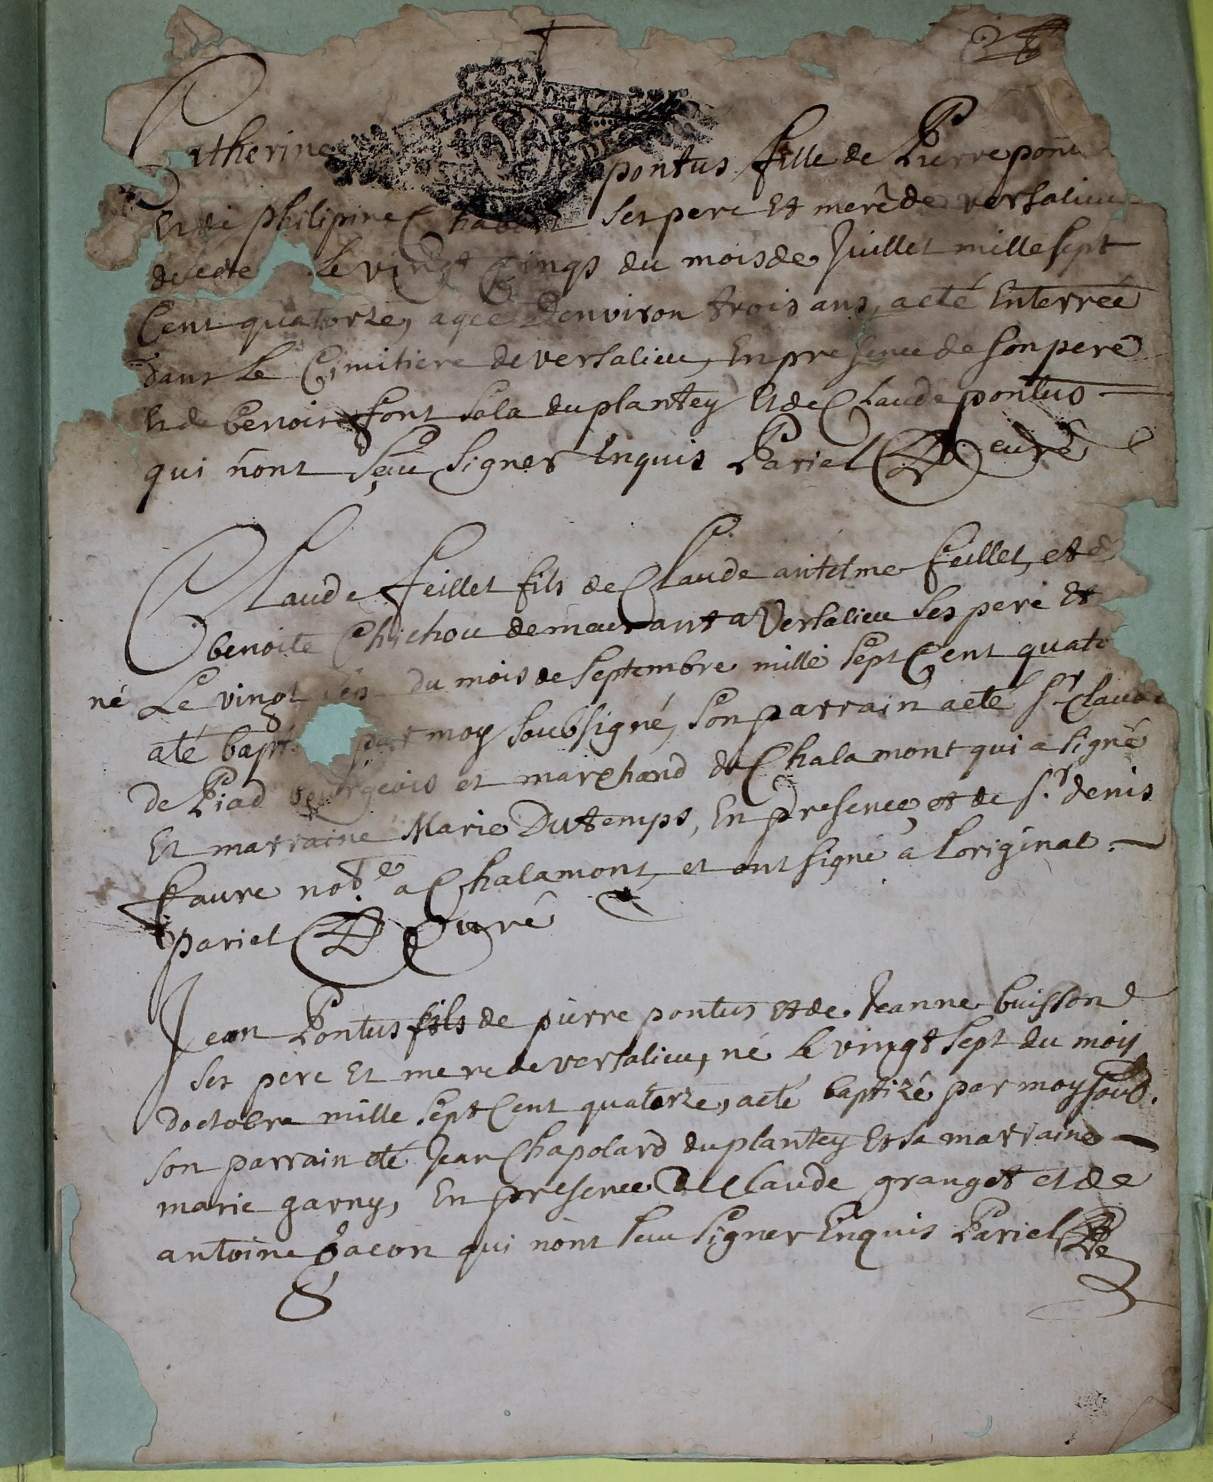 Catherine pontus fille de Pierre pont
Et de philipine Chab ses pere Et mere de versalieu
le vingt Cinqs du mois de Juillet mille sept
Cent quatorze, agée Denviron trois ans, aeté Enterrée
dans Le Cimitiere de versalieu, En presence de son pere
Et de benoist font sala du plantey Et de Claude pontus
qui nont sçeu signer Enquis Pariel curé
Claude feillet fils de Claude antelme feillet, et de
benoite Chichou demeurant a Versalieu ses pere Et
né Le vingt du mois de septembre mille sept Cent quato
até bapt par moy soubsigné, son parrain aeté sr Claude
de Piad bourgeois et marchand de Chalamont qui a signé
Et marraine Marie Dutemps, En presence, et de sr. denis
faure not.re a Chalamont, et ont signé a Loriginal.
pariel Curé
Jean Pontus fils de pierre pontus Et de Jeanne buisson
ses pere Et mere de versalieu, né Le vingt sept du mois
doctobre mille sept Cent quatorze, aeté baptizé par moy soub.
son parrain eté Jean Chapolard du plantey Et sa marraine
marie garny, En presence de Claude granget et de
antoine gacon qui nont sceu signer Enquis Pariel